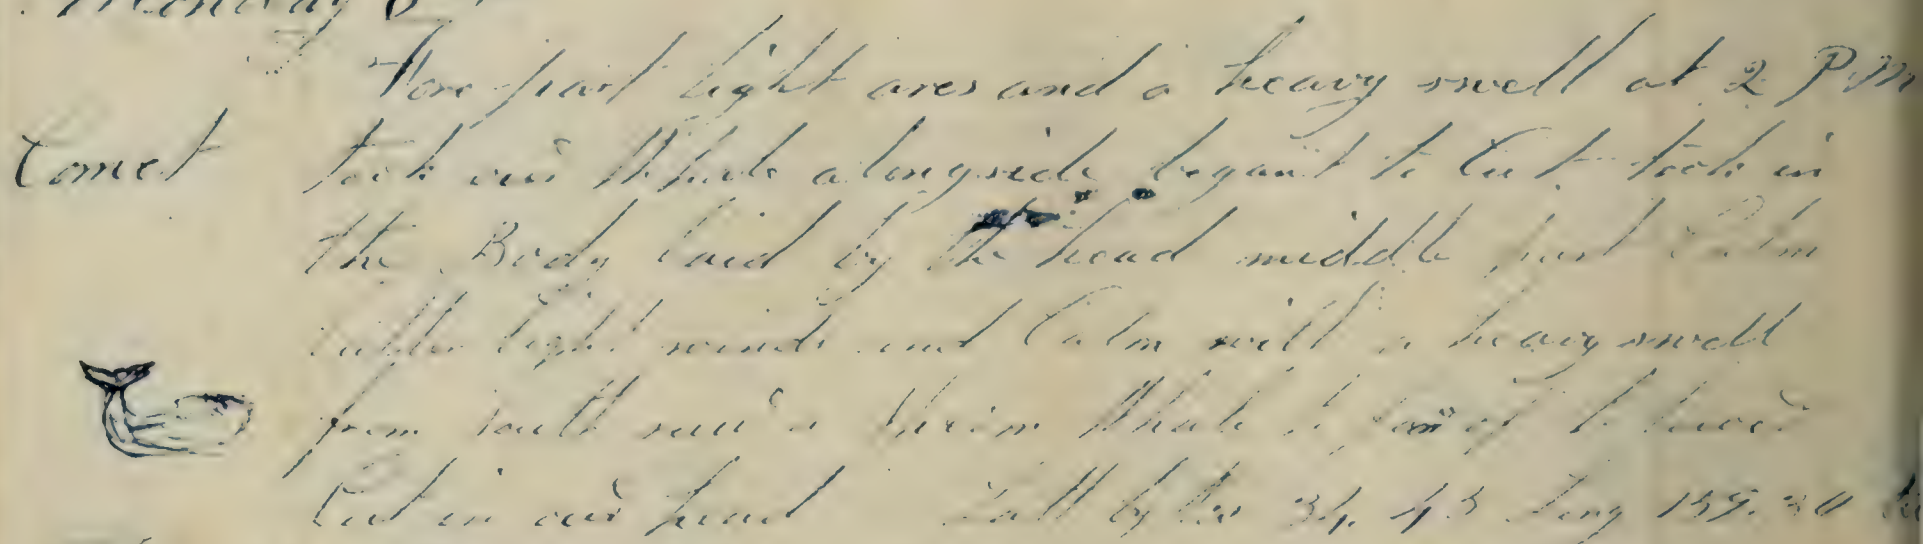 Monday 8
Fore part light ares and a heavy swell at 2 P.M
Comet
took our Whale alongside began't to Cut took in
the Body laid by the head middle part Calm
latter light winds and Calm with a heavy swell
from South saw a Whale to far of to lower
Cut in our head Latt by Obs 34.43 Long 159.30